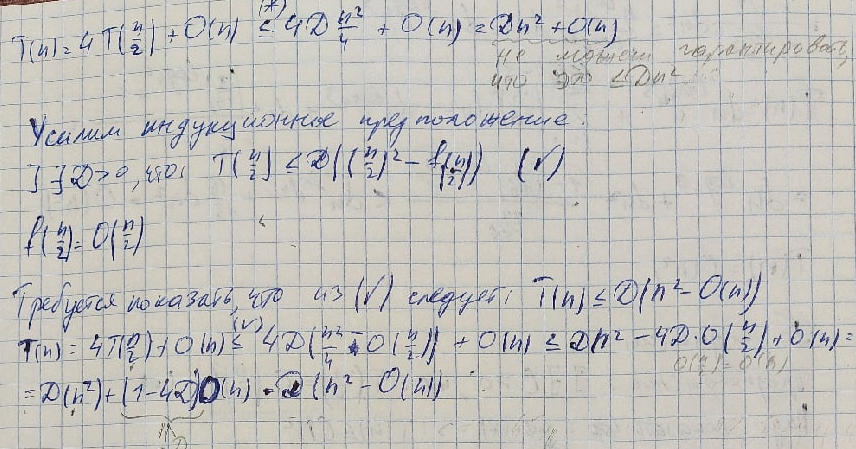 T(n) = 4T(n/2) + O(n) ≤ (*) 4D n²/4 + O(n) = Dn² + O(n)
не может гарантировать,
что это ≤ Dn²
Усилим индукционное предположение:
] ∃D>0, что: T(n/2) ≤ D((n/2)² - f(n/2)) (√)
f(n/2) = O(n/2)
Требуется показать, что из (√) следует: T(n) ≤ D(n² - O(n))
T(n) = 4T(n/2) + O(n) ≤ (√) 4D(n²/4 - O(n/2)) + O(n) ≤ Dn² - 4D·O(n/2) + O(n) =
O(n/2) = O(n)
= D(n²) + (1-4D)O(n) = D(n² - O(n))